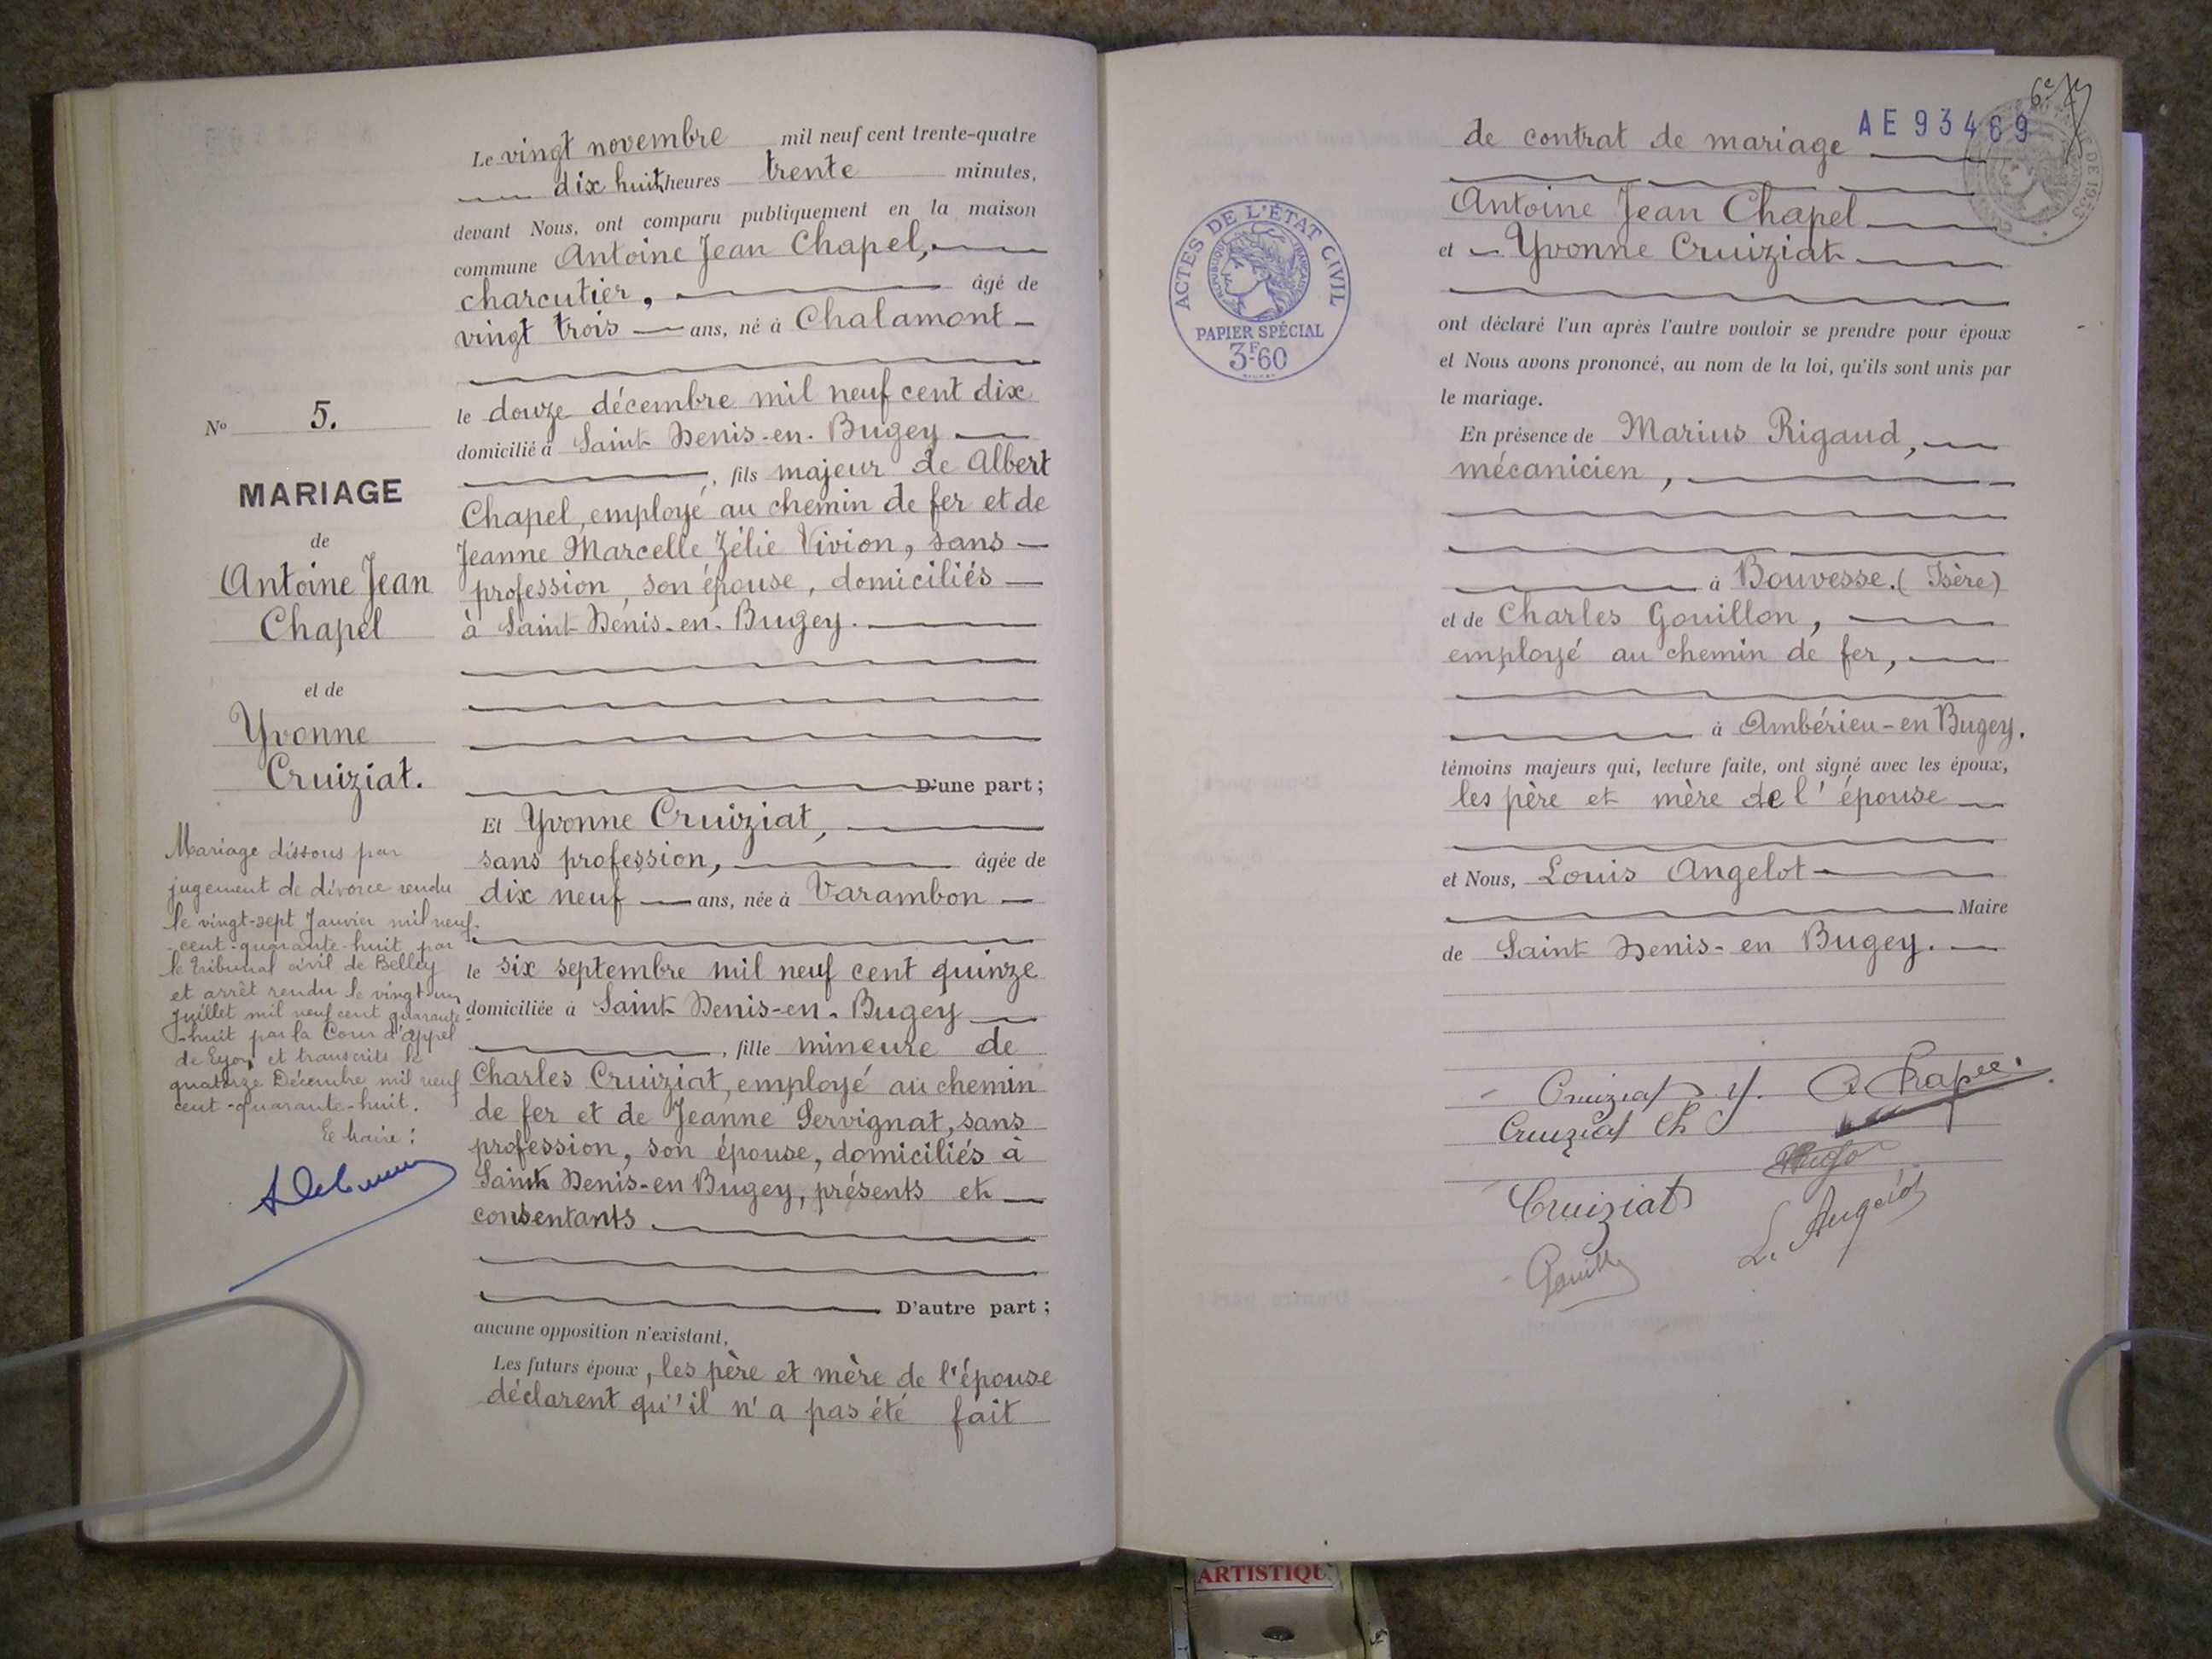 N° 5.
MARIAGE
de
Antoine Jean
Chapel
et de
Yvonne
Cruiziat.
Mariage dissous par
jugement de divorce rendu
le vingt-sept Janvier mil neuf-
-cent-quarante-huit par
le tribunal civil de Belley
et arrêt rendu le vingt-un
juillet mil neuf cent quarante-
-huit par la Cour d'appel
de Lyon et transcrits le
quatorze Décembre mil neuf
cent-quarante-huit.
Le Maire :
Le vingt novembre mil neuf cent trente-quatre
dix huit heures trente minutes,
devant Nous, ont comparu publiquement en la maison
commune Antoine Jean Chapel,
charcutier, âgé de
vingt trois ans, né à Chalamont
le douze décembre mil neuf cent dix
domicilié à Saint Denis-en-Bugey
, fils majeur de Albert
Chapel, employé au chemin de fer et de
Jeanne Marcelle Zélie Vivion, sans
profession, son épouse, domiciliés
à Saint-Denis-en-Bugey.
D'une part ;
Et Yvonne Cruiziat,
sans profession, âgée de
dix neuf ans, née à Varambon
le six septembre mil neuf cent quinze
domiciliée à Saint Denis-en-Bugey
, fille mineure de
Charles Cruiziat, employé au chemin
de fer et de Jeanne Servignat, sans
profession, son épouse, domiciliés à
Saint Denis-en Bugey, présents et
consentants
D'autre part ;
aucune opposition n'existant,
Les futurs époux, les père et mère de l'épouse
déclarent qu'il n'a pas été fait
AE 93469
6e
de contrat de mariage
Antoine Jean Chapel
et Yvonne Cruiziat
ACTES DE L'ÉTAT CIVIL
RÉPUBLIQUE FRANÇAISE
PAPIER SPÉCIAL
3F60
ont déclaré l'un après l'autre vouloir se prendre pour époux
et Nous avons prononcé, au nom de la loi, qu'ils sont unis par
le mariage.
En présence de Marius Rigaud,
mécanicien,
à Bouvesse. (Isère)
et de Charles Gouillon,
employé au chemin de fer,
à Ambérieu-en Bugey.
témoins majeurs qui, lecture faite, ont signé avec les époux,
les père et mère de l'épouse
et Nous, Louis Angelot
Maire
de Saint Denis-en Bugey.
Cruiziat Y. A Chapel
Cruiziat Ch
Cruiziat
L. Angelot
ARTISTIQU